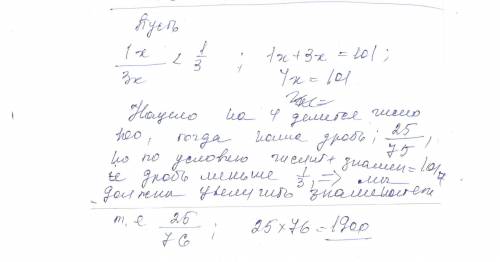 Пусть
1x/3x < 1/3 ; 1x+3x=101;
4x=101
Нацело на 4 делится число
100, тогда наша дробь; 25/75,
но по условию числит+знамен=101,
дробь меньше 1/3, → мы
должны увеличить знаменатель
т.е 25/76 ; 25×76=1900